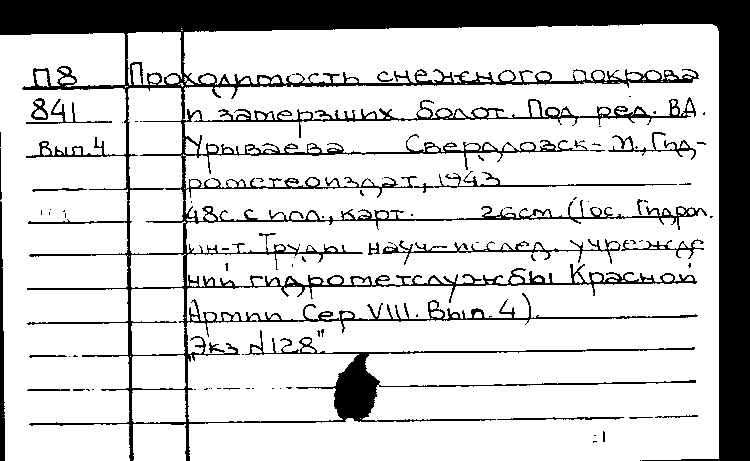 П8 Проходимость снежного покрова
841 и замерзших болот. Под ред. В.А.
Вып.4 Урываева Свердловск-М., Гид-
рометеоиздат, 1943
48с. с илл., карт. 26cm. (Гос. Гидрол.
ин-т. Труды науч-исслед. учрежде
ний гидрометслужбы Красной
Армии Сер. VIII. Вып. 4).
"Экз №128"